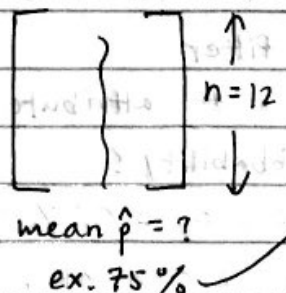 n = 12
mean p̂ = ?
ex. 75%